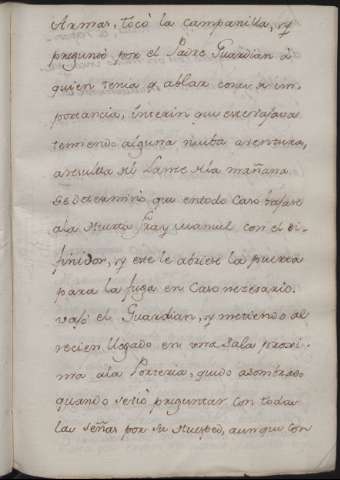 Armas, tocò la campanilla, y
preguntò por el Padre Guardian à
quien tenia q ablar cosas de im-
portancia, interin que este vajava
temiendo alguna nueba aventura,
aresulta del Lance de la mañana
se determinò que entodo Caso vajase
ala Huerta Fray Manuel con el di-
finidor, y este le abriese la puerta
para la fuga en Caso nezesario.
vajò el Guardian, y metiendo al
recien llegado en una Sala proxi-
ma ala Porteria, quedo asombrado
quando seoiò preguntar con todas
las señas por su Huesped, aunque con